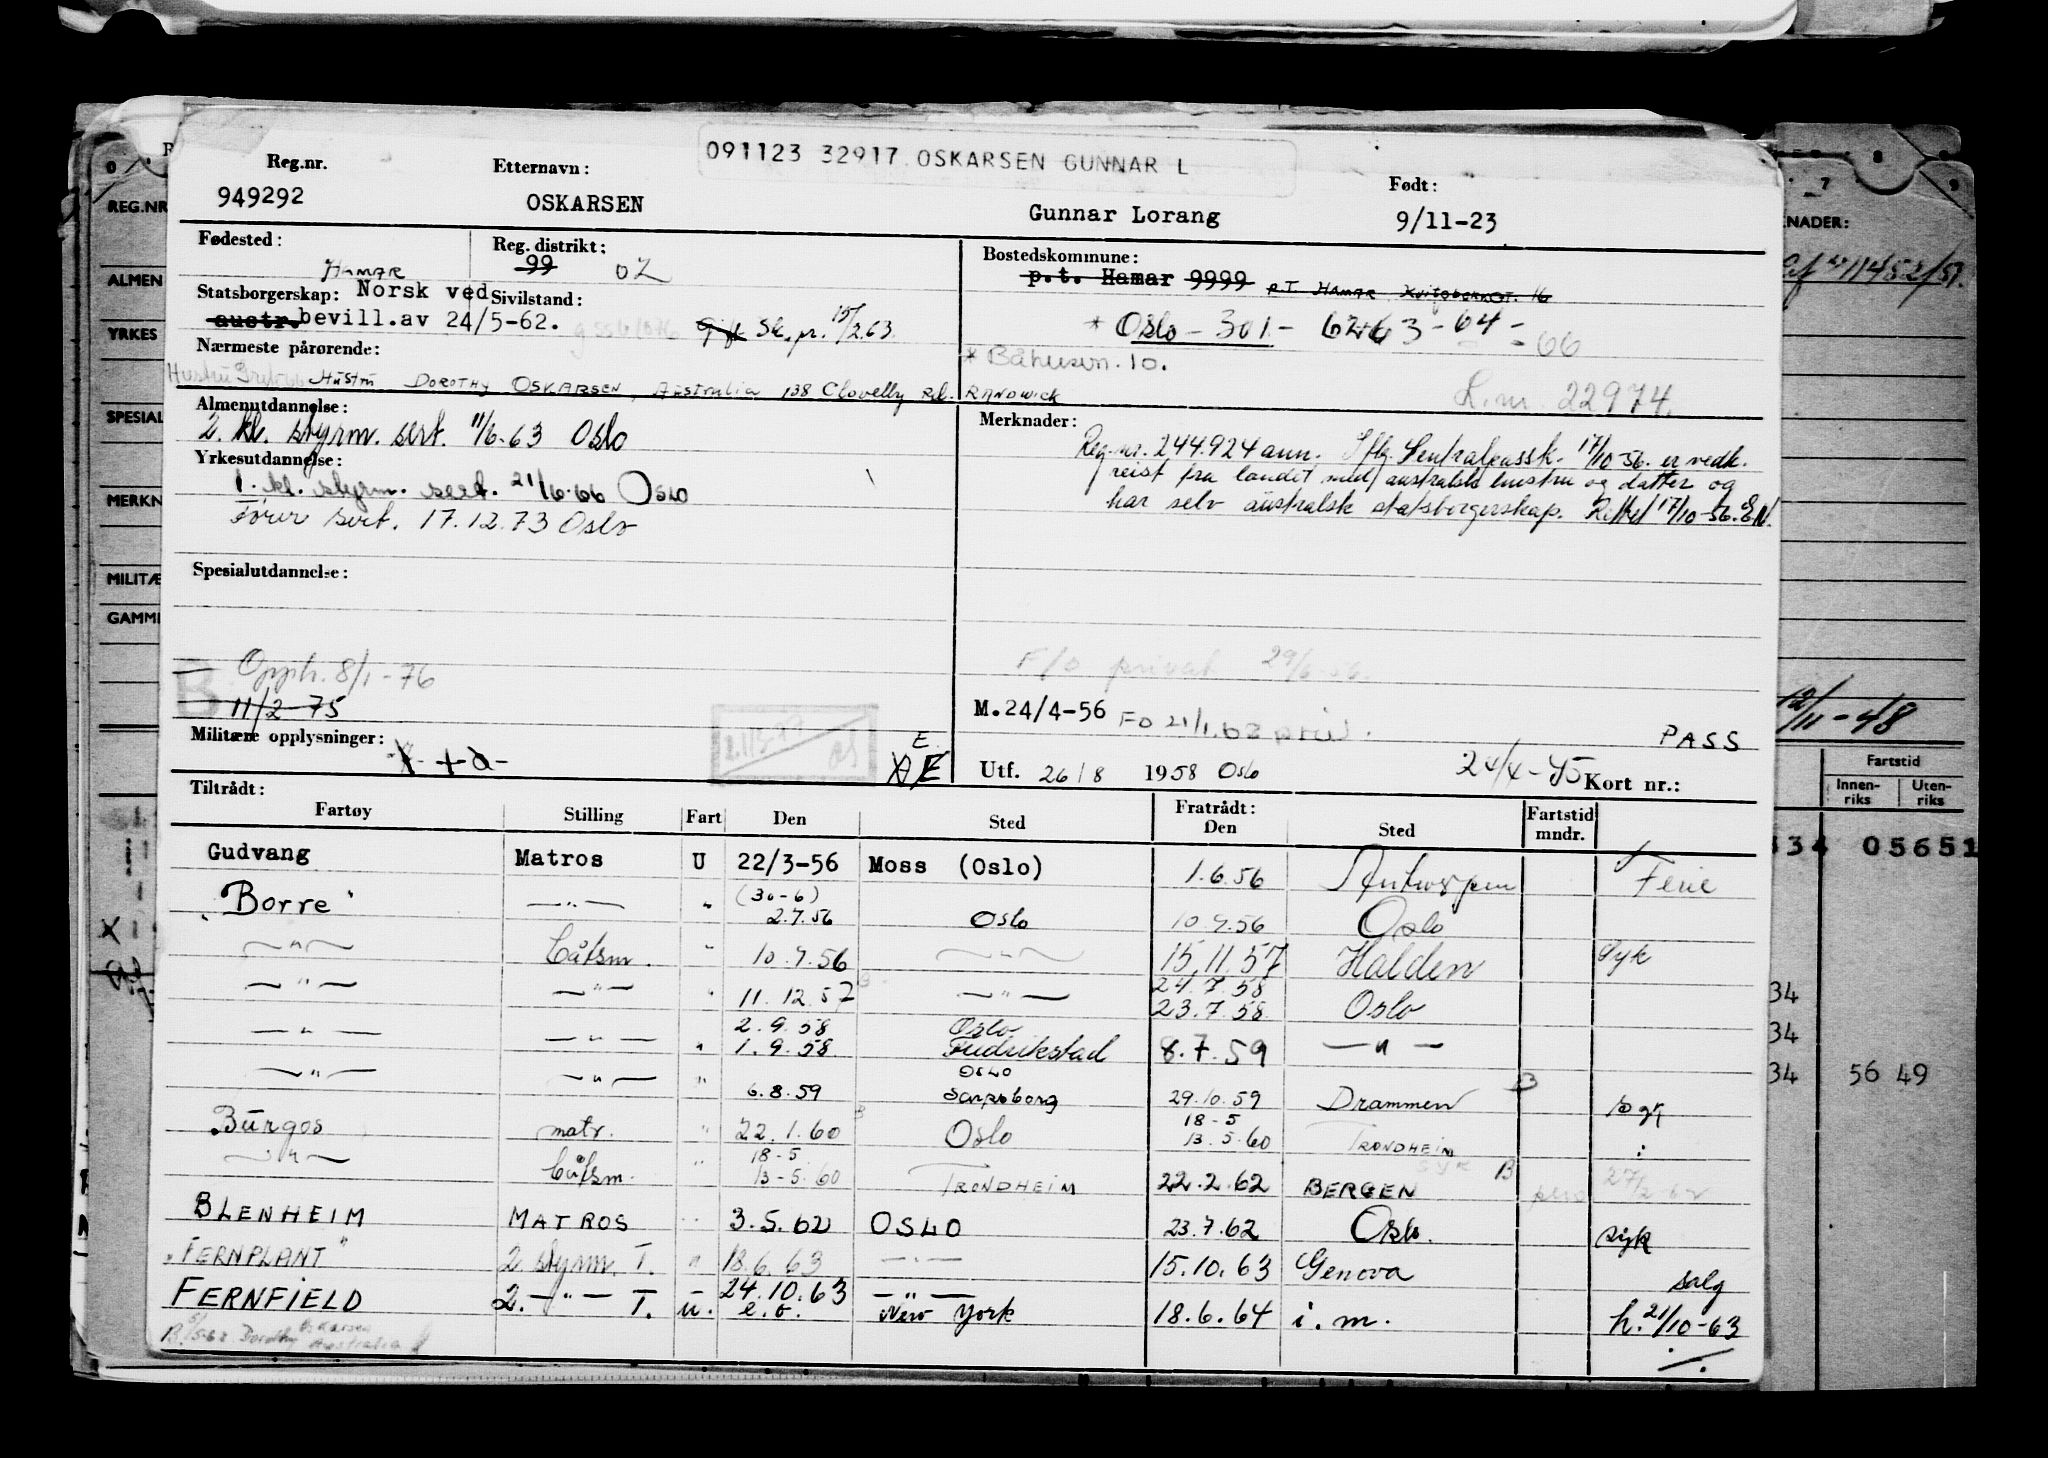 091123 32917 OSKARSEN GUNNAR L
Reg.nr. Etternavn: Født:
949292 OSKARSEN Gunnar Lorang 9/11-23
Fødested: Reg. distrikt: Bostedskommune:
HAMAR 99 02 p.t. Hamar 9999 P.T. HAMAR 16
Statsborgerskap: Norsk ved Sivilstand:
austr. bevill.av 24/5-62. Gift Sk.pr. 15/2.63 * Oslo - 301 - 62+63 - 64 - 66
Nærmeste pårørende: * Båhusvn. 10.
Hustru DOROTHY OSKARSEN, AUSTRALIA 138 Clovelly Rd. RANDWICK
L.nr. 22974.
Almenutdannelse: Merknader:
2. kl. styrm. sert. 11/6-63 Oslo
Reg.nr. 244.924 ann. Iflg. Sentralpassk. 17/10-56. er vedk.
Yrkesutdannelse:
reist fra landet med australsk hustru og datter og
1. kl. styrm. sert. 21/6-66 Oslo
har selv australsk statsborgerskap. Rettet 17/10-56. EN.
Fører sert. 17.12.73 Oslo
Spesialutdannelse:
F/O privat 29/6-56.
B Opph. 8/1-76
11/2-75
M.24/4-56 FO 21/1.63 priv. PASS
Militære opplysninger: E
Utf. 26/8 1958 Oslo 24/4-45 Kort nr.:
Tiltrådt: Fratrådt: Fartstid
Fartøy Stilling Fart Den Sted Den Sted mndr.
Gudvang Matros U 22/3-56 Moss (Oslo) 1.6.56 Antwerpen Ferie
"Borre" —"— " (30-6) 2.7.56 Oslo 10.7.56 Oslo
—"— Båtsm. " 10.7.56 —"— 15.11.57 Halden Syk
—"— —"— " 11.12.57 —"— 24.7.58 23.7.58 Oslo
—"— —"— " 2.9.58 1.9.58 Oslo Fredrikstad 8.7.59 —"—
—"— —"— " 6.8.59 OSLO Sarpsborg 29.10.59 Drammen B syk
Burgos matr. " 22.1.60 Oslo 18-5 13.5.60 TRONDHEIM
—"— Båtsm. " 18-5 13-5.60 TRONDHEIM 22.2.62 BERGEN B 27/2-62
BLENHEIM MATROS " 3.5.62 OSLO 23.7.62 Oslo. syk
"FERNPLANT" 2 styrm. T. " 18.6.63 —"— 15.10.63 Genova salg
FERNFIELD 2. —"— T. u. 24.10.63 e.o. —"— New York 18.6.64 i.m. h. 21/10-63
Dorothy Oskarsen Australia
REG.NR
ALMEN
YRKES
SPESIAL
MERKN
MILITÆ
GAMM
ENADER:
12/11-48
Fartstid
Innen-riks Uten-riks
34 05651
34
34
34 56 49